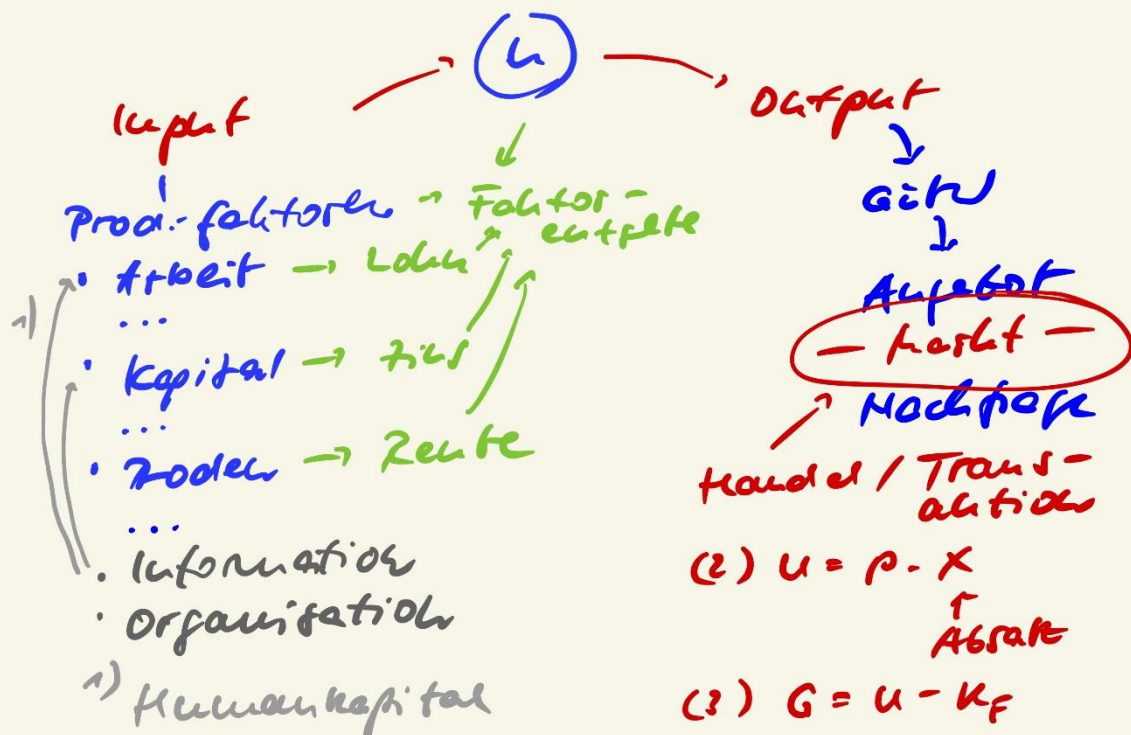 U
Input
Output
Prod.-faktoren → Faktor-
entgelte
• Arbeit → Lohn
...
• Kapital → Zins
...
• Boden → Rente
...
• Information
• Organisation
1) Humankapital
1)
Güter
Angebot
— Markt —
Nachfrage
Handel / Trans-
aktion
(2) U = p · x
Absatz
(3) G = U - KF